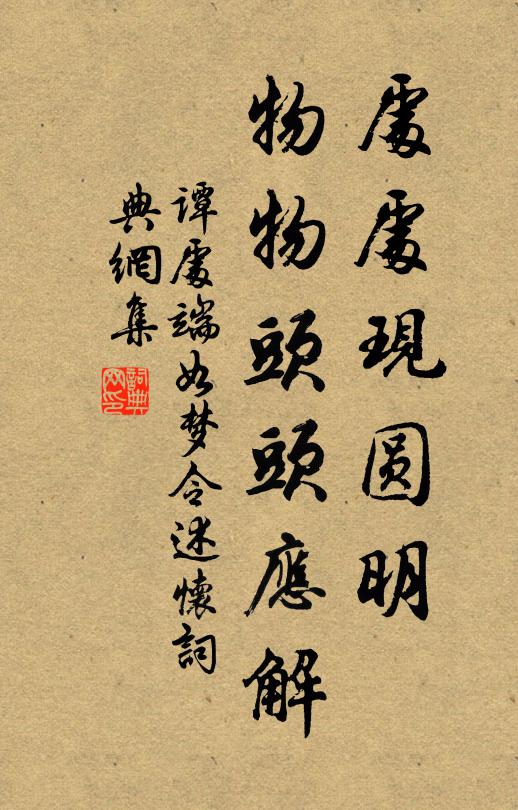 處處現圆明
物物頭頭應解
譚處端如梦令述懷詞
典網集
詞典
网印